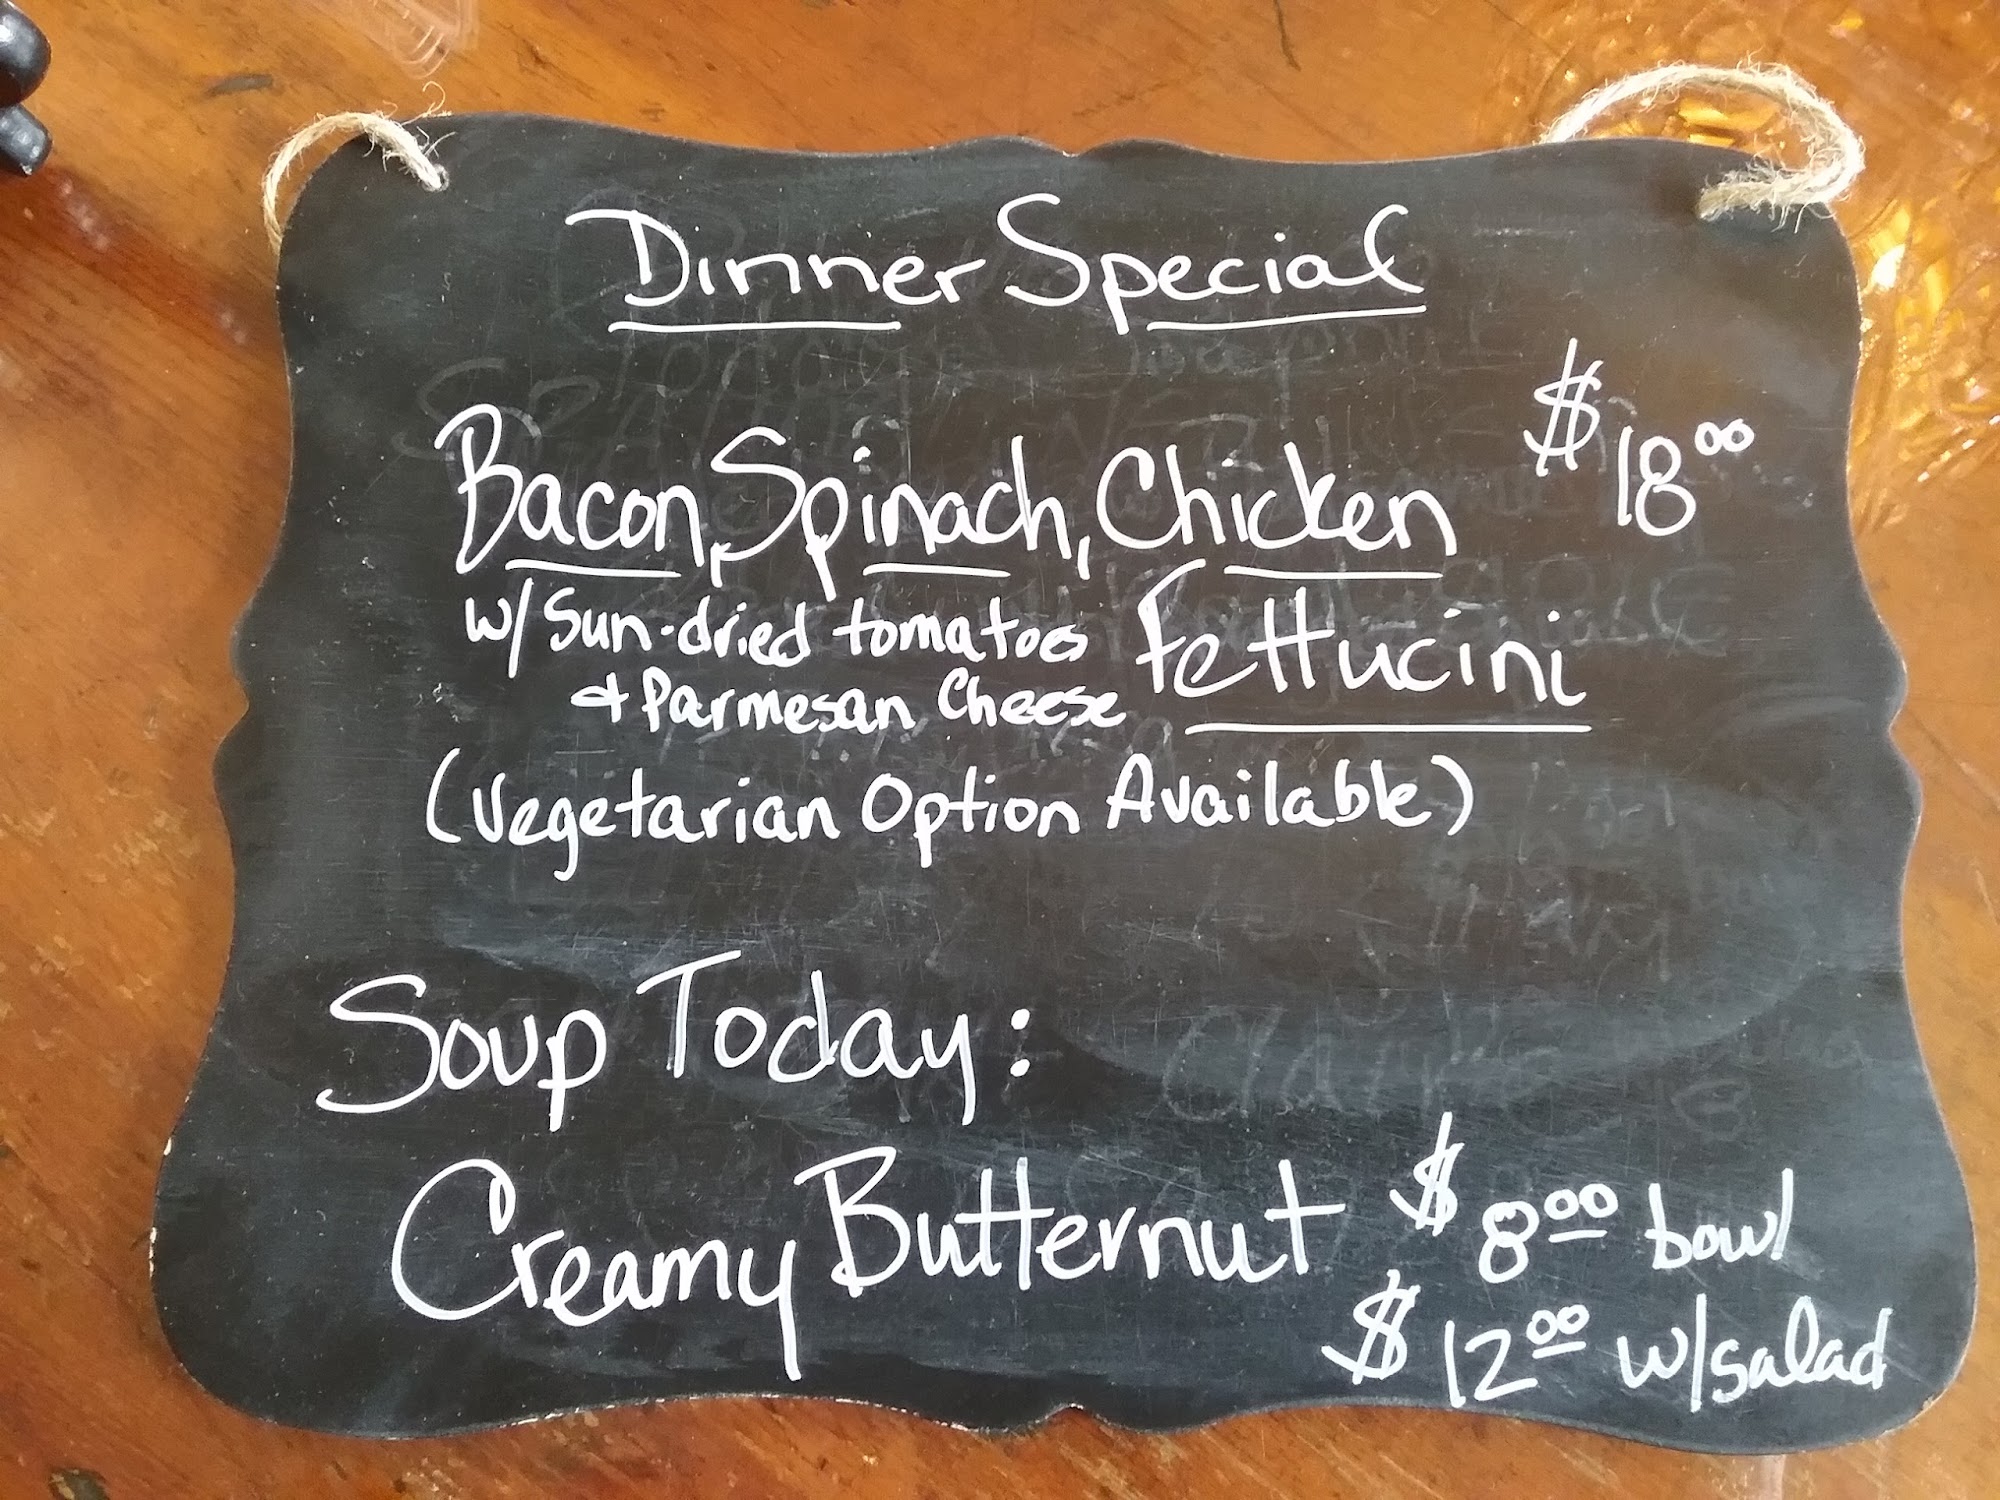 Dinner Special
$18⁰⁰
Bacon, Spinach, Chicken
w/ Sun-dried tomatoes Fettucini
& Parmesan Cheese
(Vegetarian Option Available)
Soup Today:
Creamy Butternut $8⁰⁰ bowl
$12⁰⁰ w/salad